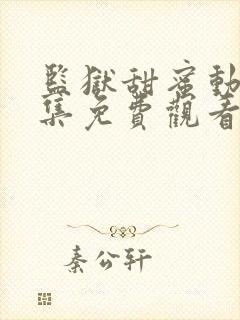 監獄甜蜜動
集免費觀看
秦公軒